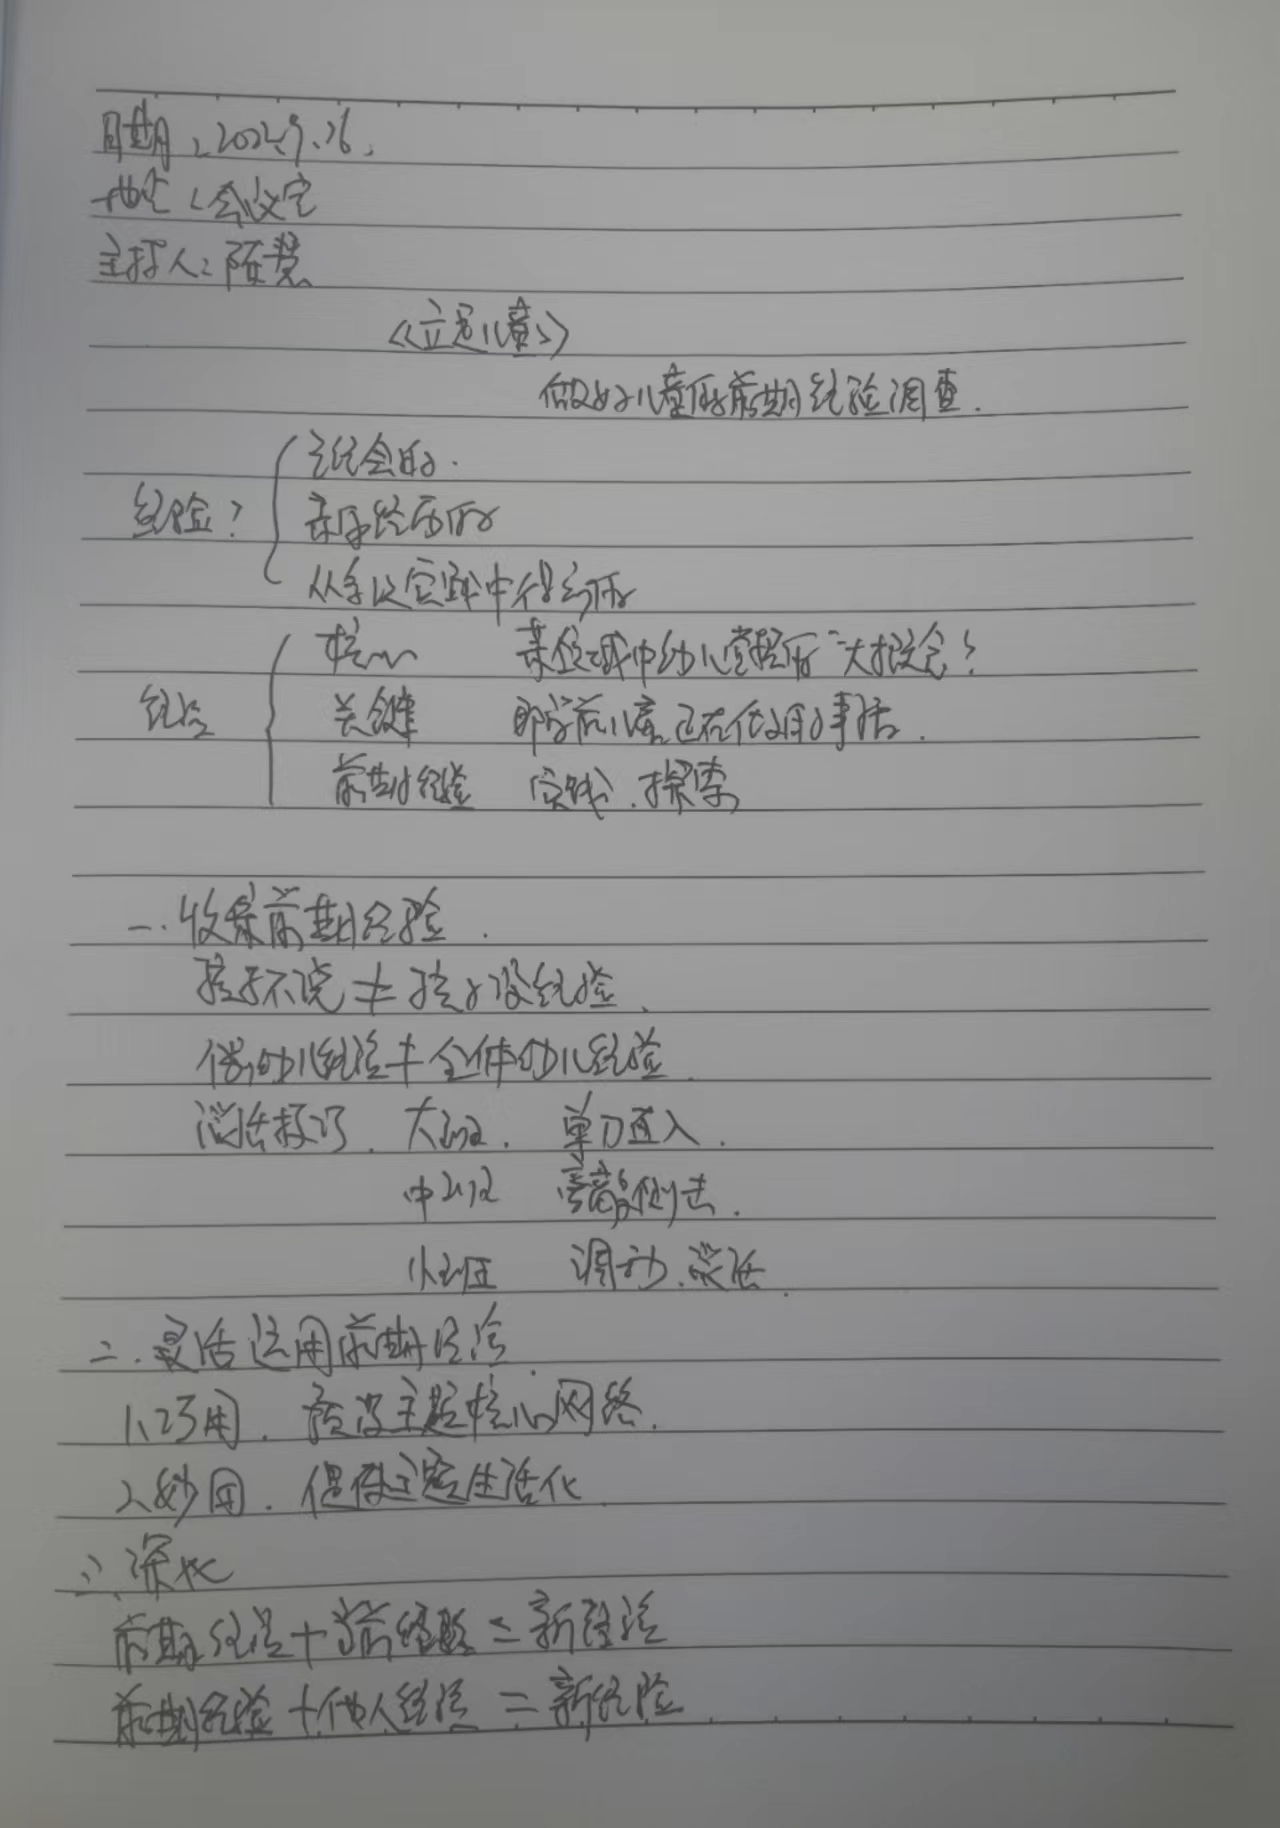 日期:2022.9.26.
地点:会议室
主持人:陈慧
《立足儿童》
做好儿童的前期经验调查.
经验? 体会的.
亲身经历的
从多次实践中得到的
经验 核心 某领域中幼儿掌握的“大概念?
关键 即学前儿童正在做的事情.
前期经验 实践.探索
一.收集前期经验.
孩子不说≠孩子没经验.
个别幼儿经验≠全体幼儿经验.
谈话技巧. 大班. 单刀直入.
中班 旁敲侧击.
小班 调动.谈话.
二.灵活运用前期经验.
1、巧用. 预设主题核心网络.
2、妙用. 促使主题生活化.
三、深化
前期经验+当前经验=新经验
前期经验+他人经验=新经验